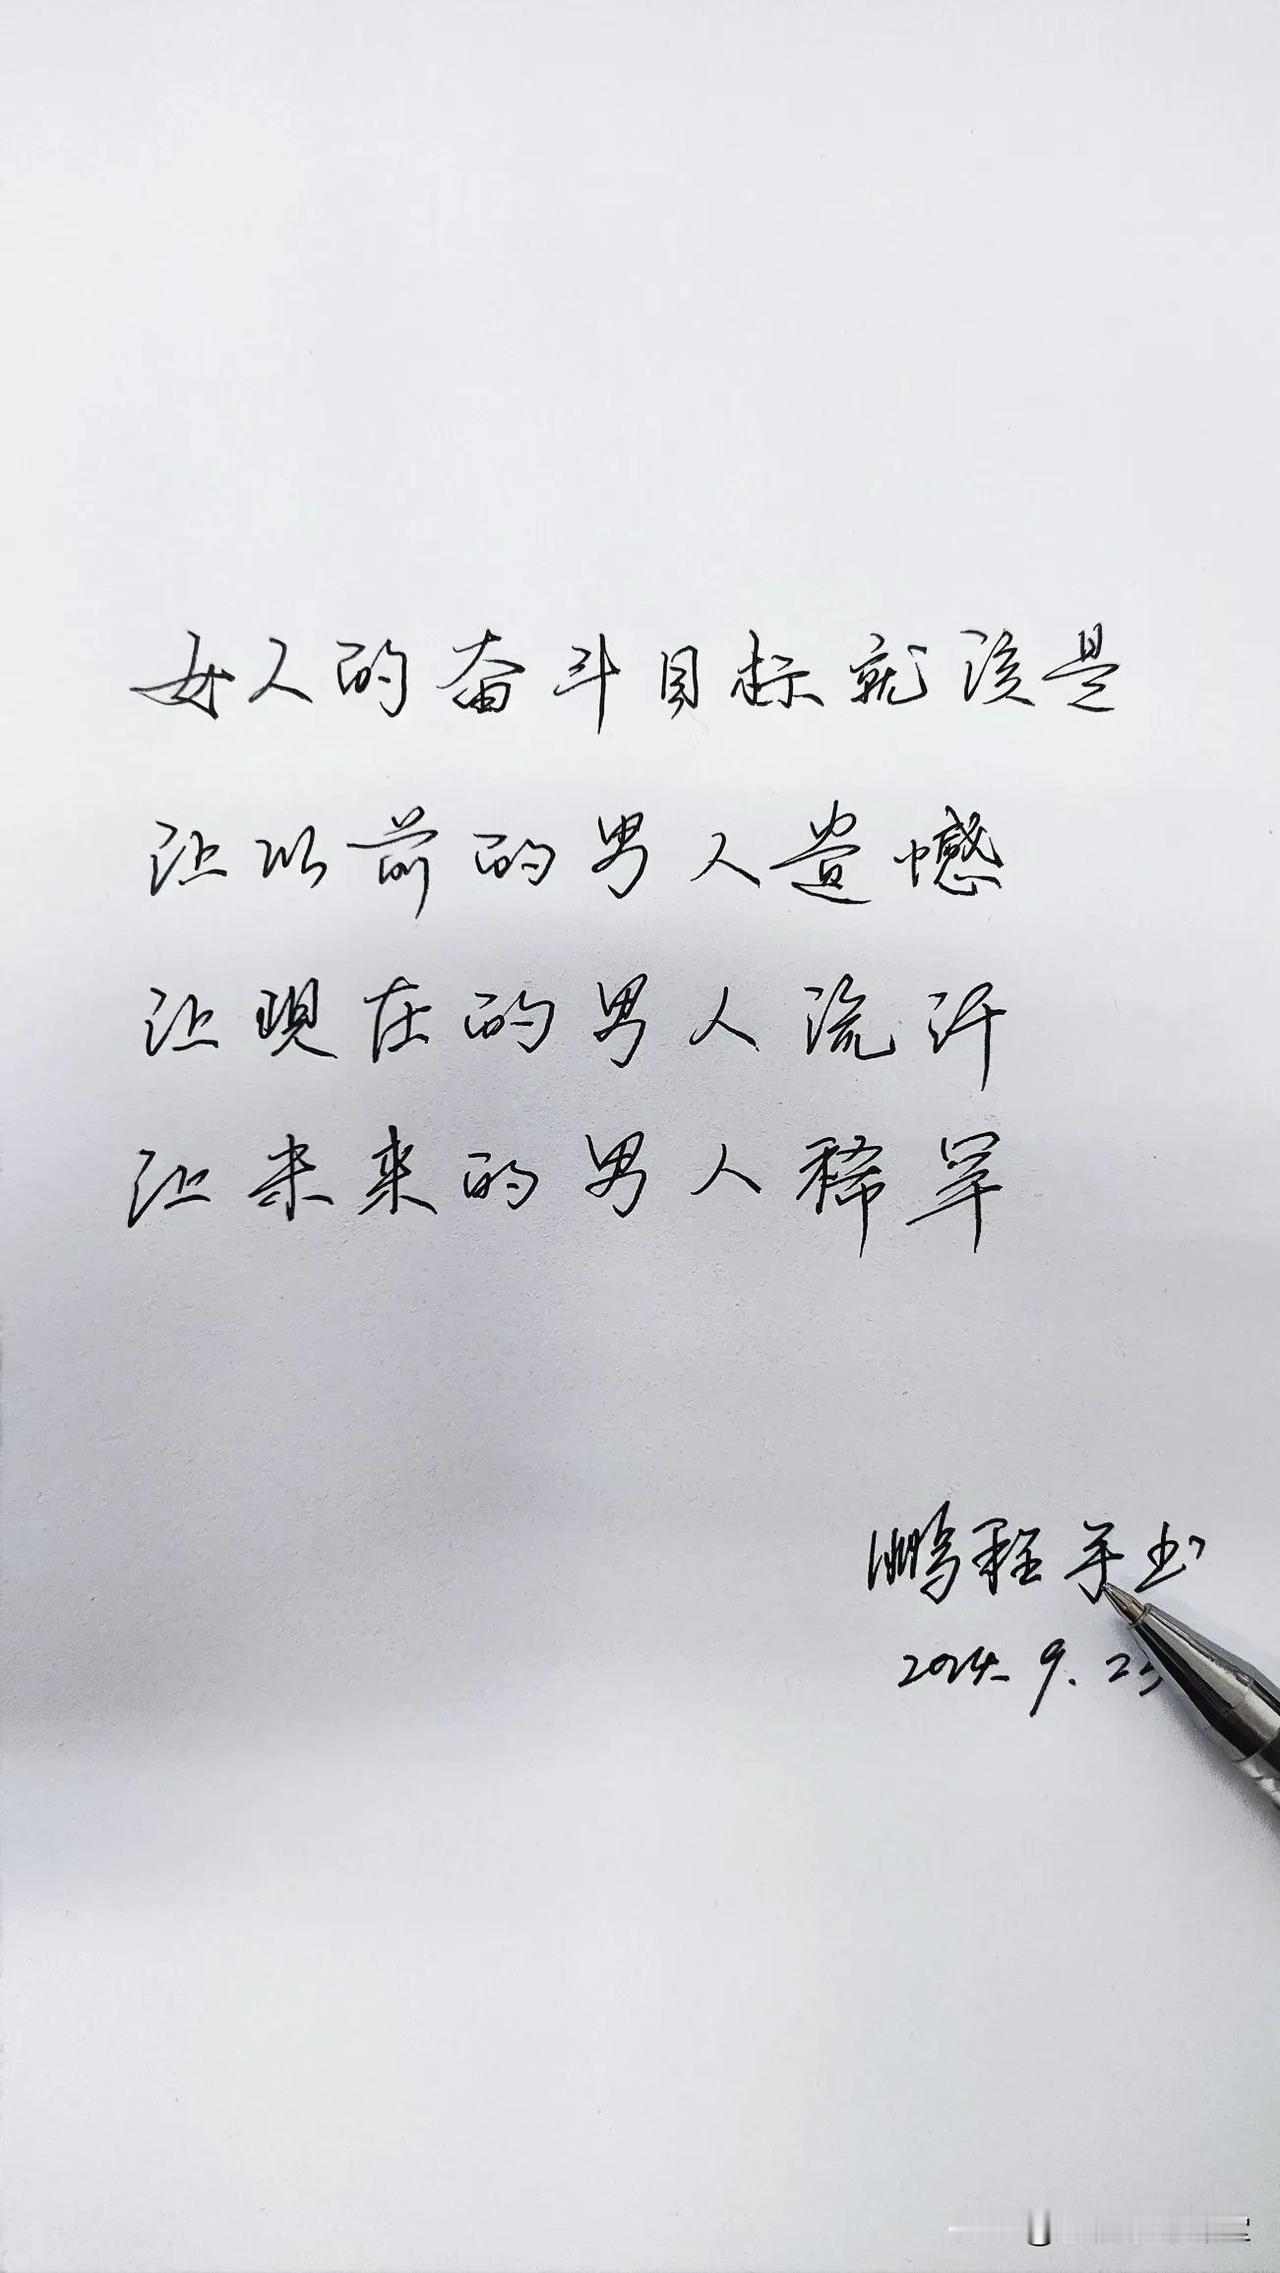 女人的奋斗目标就该是
让以前的男人遗憾
让现在的男人流汗
让未来的男人稀罕
鹏程手书
2024.9.25